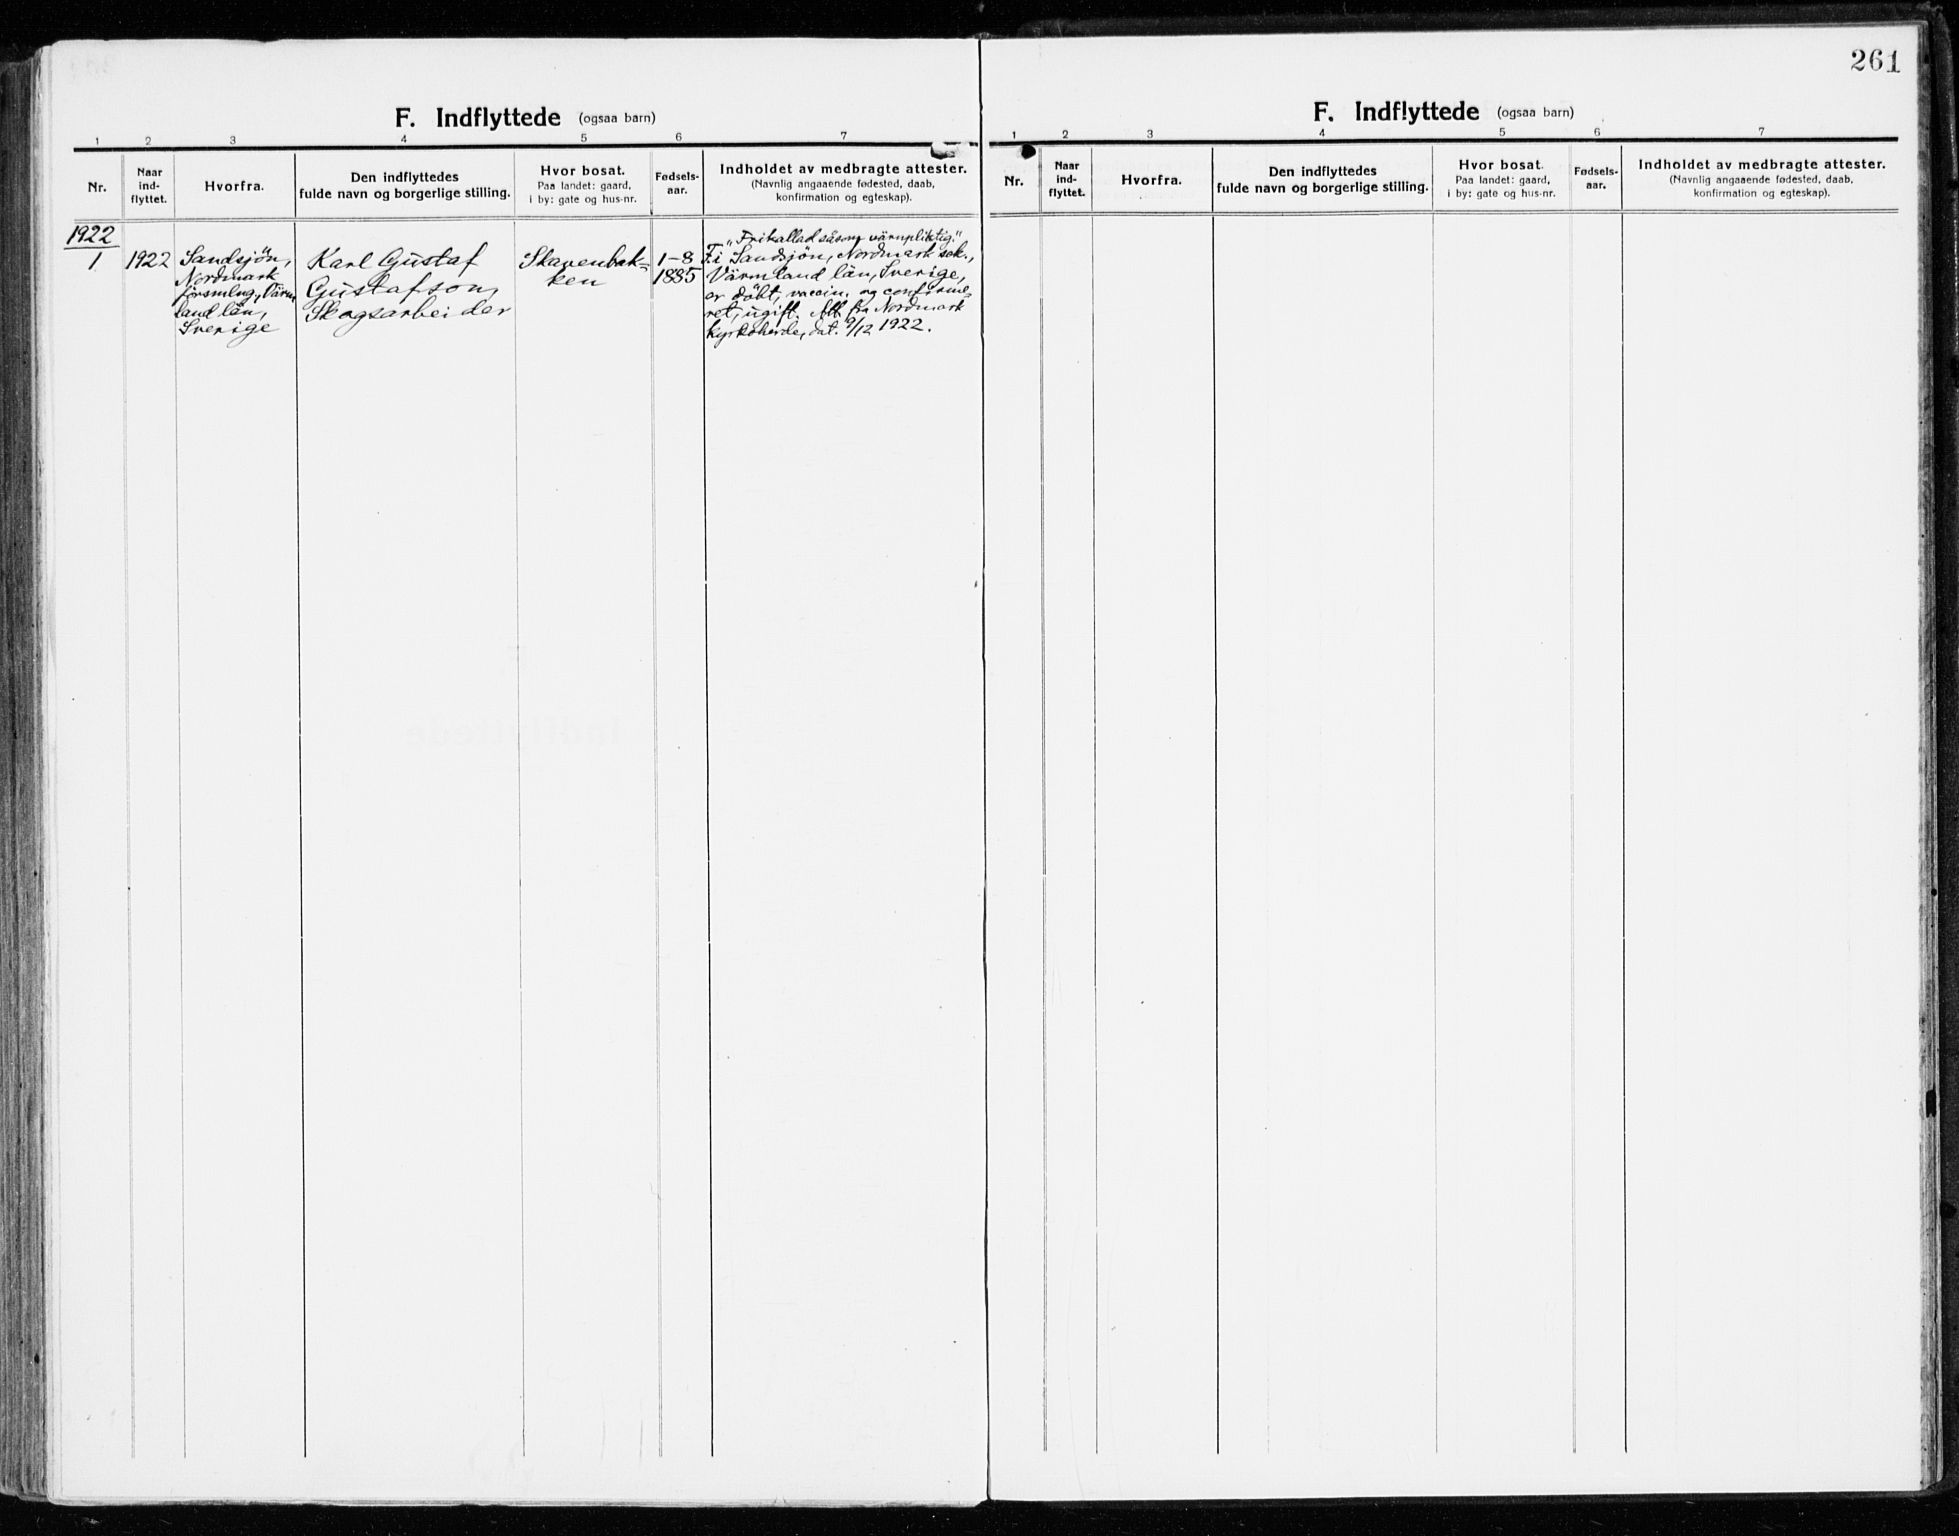 261
F. Indflyttede (ogsaa barn)
1 2 3 4 5 6 7
Nr.
Naar
ind-
flyttet.
Hvorfra.
Den indflyttedes
fulde navn og borgerlige stilling.
Hvor bosat.
Paa landet: gaard,
i by: gate og hus-nr.
Fødsels-
aar.
Indholdet av medbragte attester.
(Navnlig angaaende fødested, daab,
konfirmation og egteskap).
1922
1
1922
Sandsjön,
Nordmark
försmlng, Värm
land län,
Sverige
Karl Gustaf
Gustafson,
Skogsarbeider
Skavenbak-
ken
1-8
1885
"Frikallad såsom värnpliktig."
F. i Sandsjön, Nordmark sok.,
Värmland län, Sverige,
er döbt, vaccin. og confirme-
ret, ugift. Att. fra Nordmark
kyrkoherde, dat. 9/12 1922.
F. Indflyttede (ogsaa barn)
1 2 3 4 5 6 7
Nr.
Naar
ind-
flyttet.
Hvorfra.
Den indflyttedes
fulde navn og borgerlige stilling.
Hvor bosat.
Paa landet: gaard,
i by: gate og hus-nr.
Fødsels-
aar.
Indholdet av medbragte attester.
(Navnlig angaaende fødested, daab,
konfirmation og egteskap).